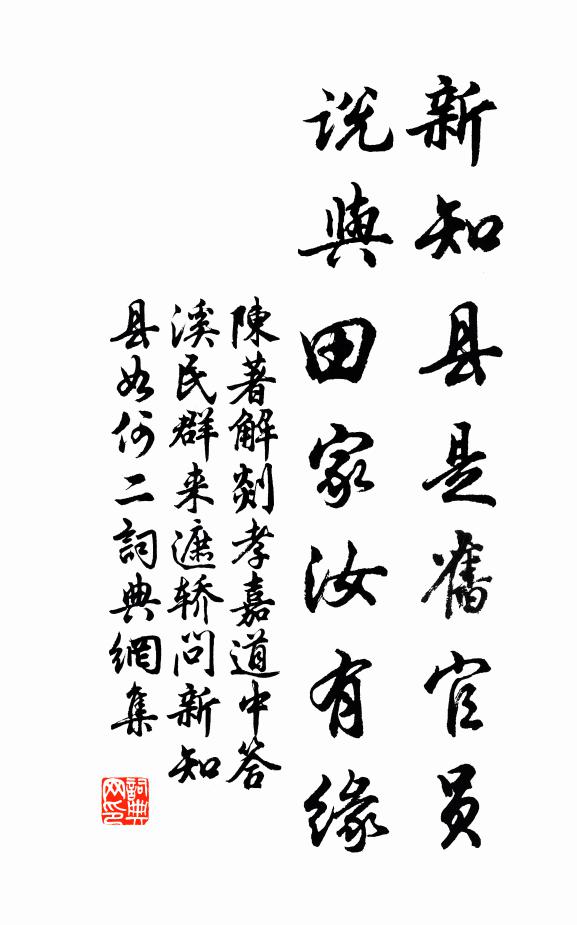 新知县是舊官员
説與田家汝有緣
陳著解剡孝嘉道中答
溪民群来遮轿问新知
县如何二詞典網集
詞典網印